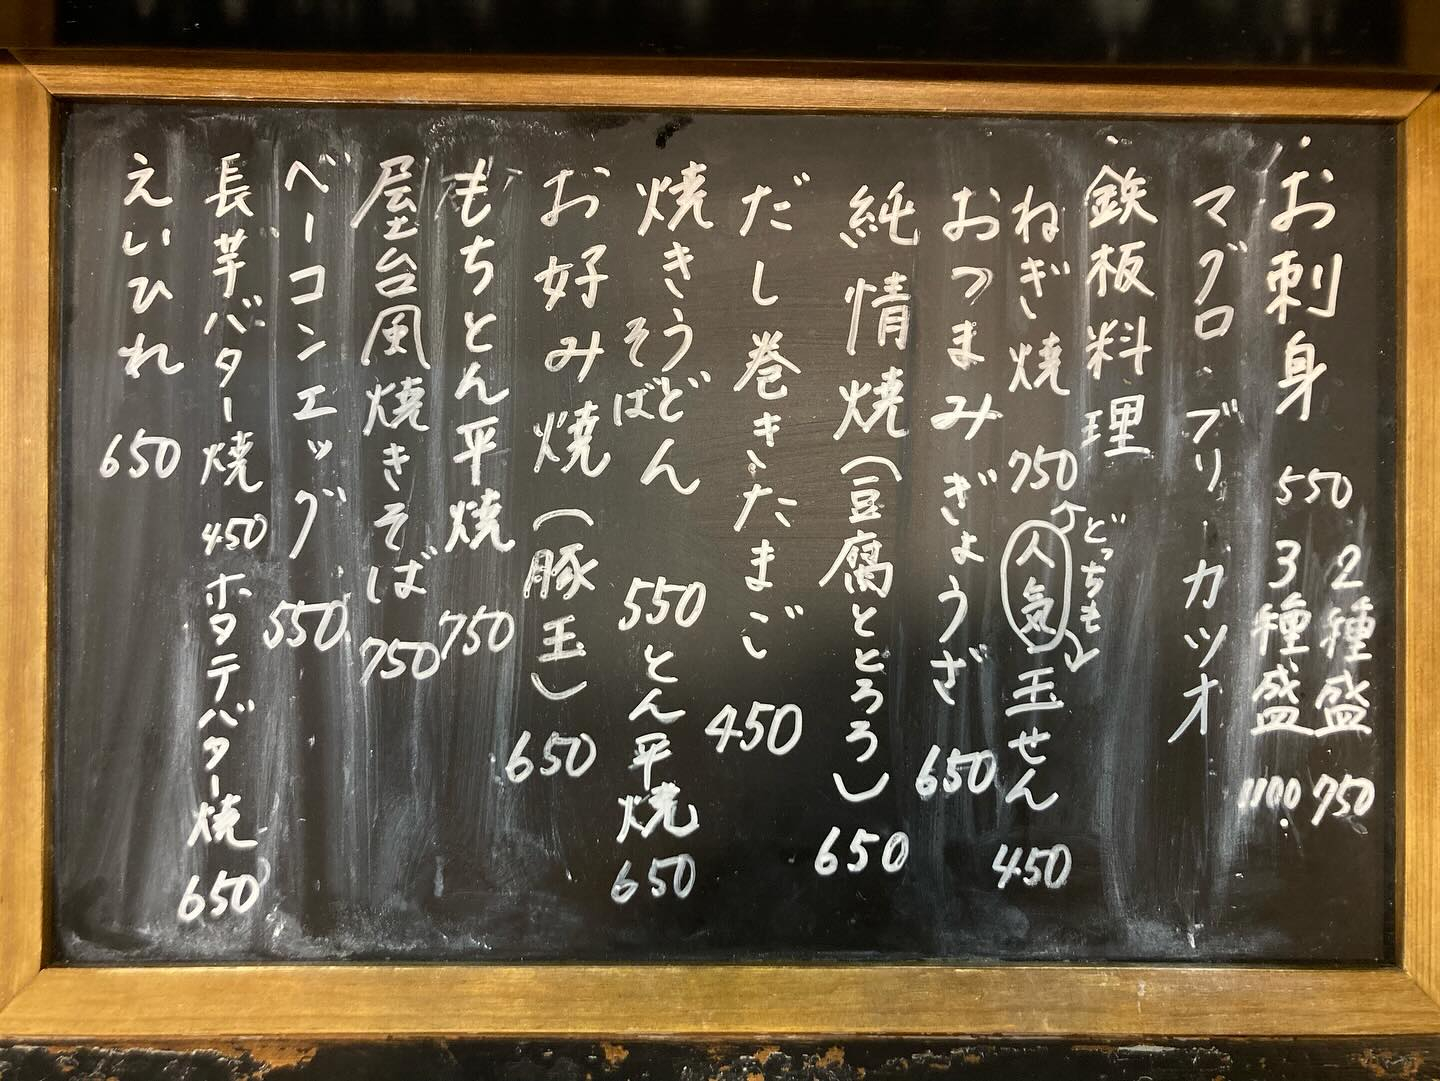 お刺身 550 2種盛 750 3種盛 1100
マグロ ブリ カツオ
鉄板料理
ねぎ焼 750 人気 どっちも 玉せん 450
おつまみぎょうざ 650
純情焼(豆腐ととろろ) 650
だし巻きたまご 450
焼きうどん そば 550 とん平焼 650
お好み焼(豚玉) 650
もちとん平焼 750
屋台風焼きそば 750
ベーコンエッグ 550
長芋バター焼 450 ホタテバター焼 650
えいひれ 650